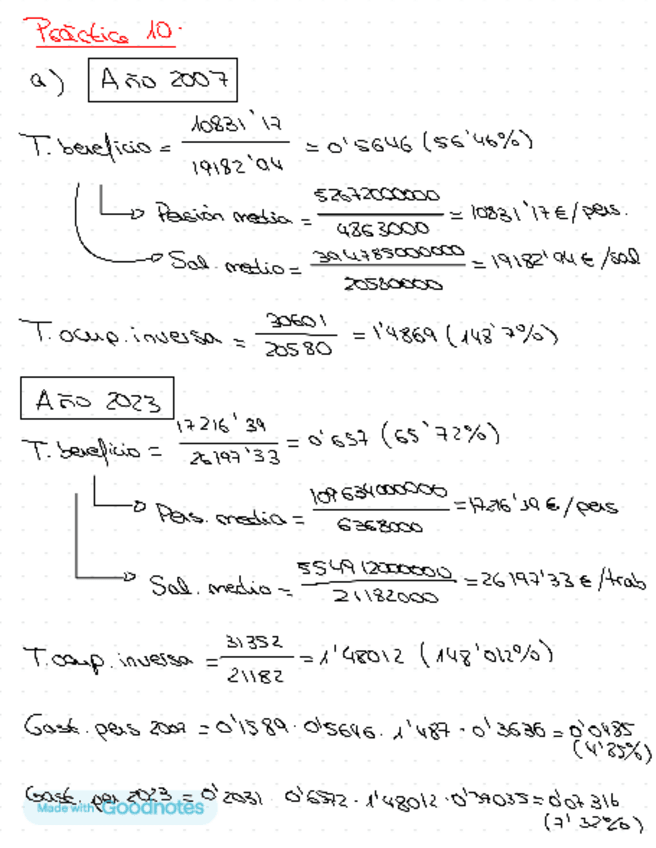 Práctica 10.
a) Año 2007
T. beneficio = 10831'17 / 19182'94 = 0'5646 (56'46%)
Pensión media = 52672000000 / 4863000 = 10831'17 € / pens.
Sal. medio = 394785000000 / 20580000 = 19182'94 € / sal
T. ocup. inversa = 30601 / 20580 = 1'4869 (148'7%)
Año 2023
T. beneficio = 17216'39 / 26197'33 = 0'657 (65'72%)
Pens. media = 109634000000 / 6368000 = 17216'39 € / pens
Sal. medio = 554912000000 / 21182000 = 26197'33 € / trab
T. ocup. inversa = 31352 / 21182 = 1'48012 (148'012%)
Gast. pens 2007 = 0'1589 · 0'5646 · 1'487 · 0'3636 = 0'0485
(4'85%)
Gast. pen 2023 = 0'2031 0'6572 · 1'48012 · 0'37035 = 0'07316
(7'32%)
Made with Goodnotes